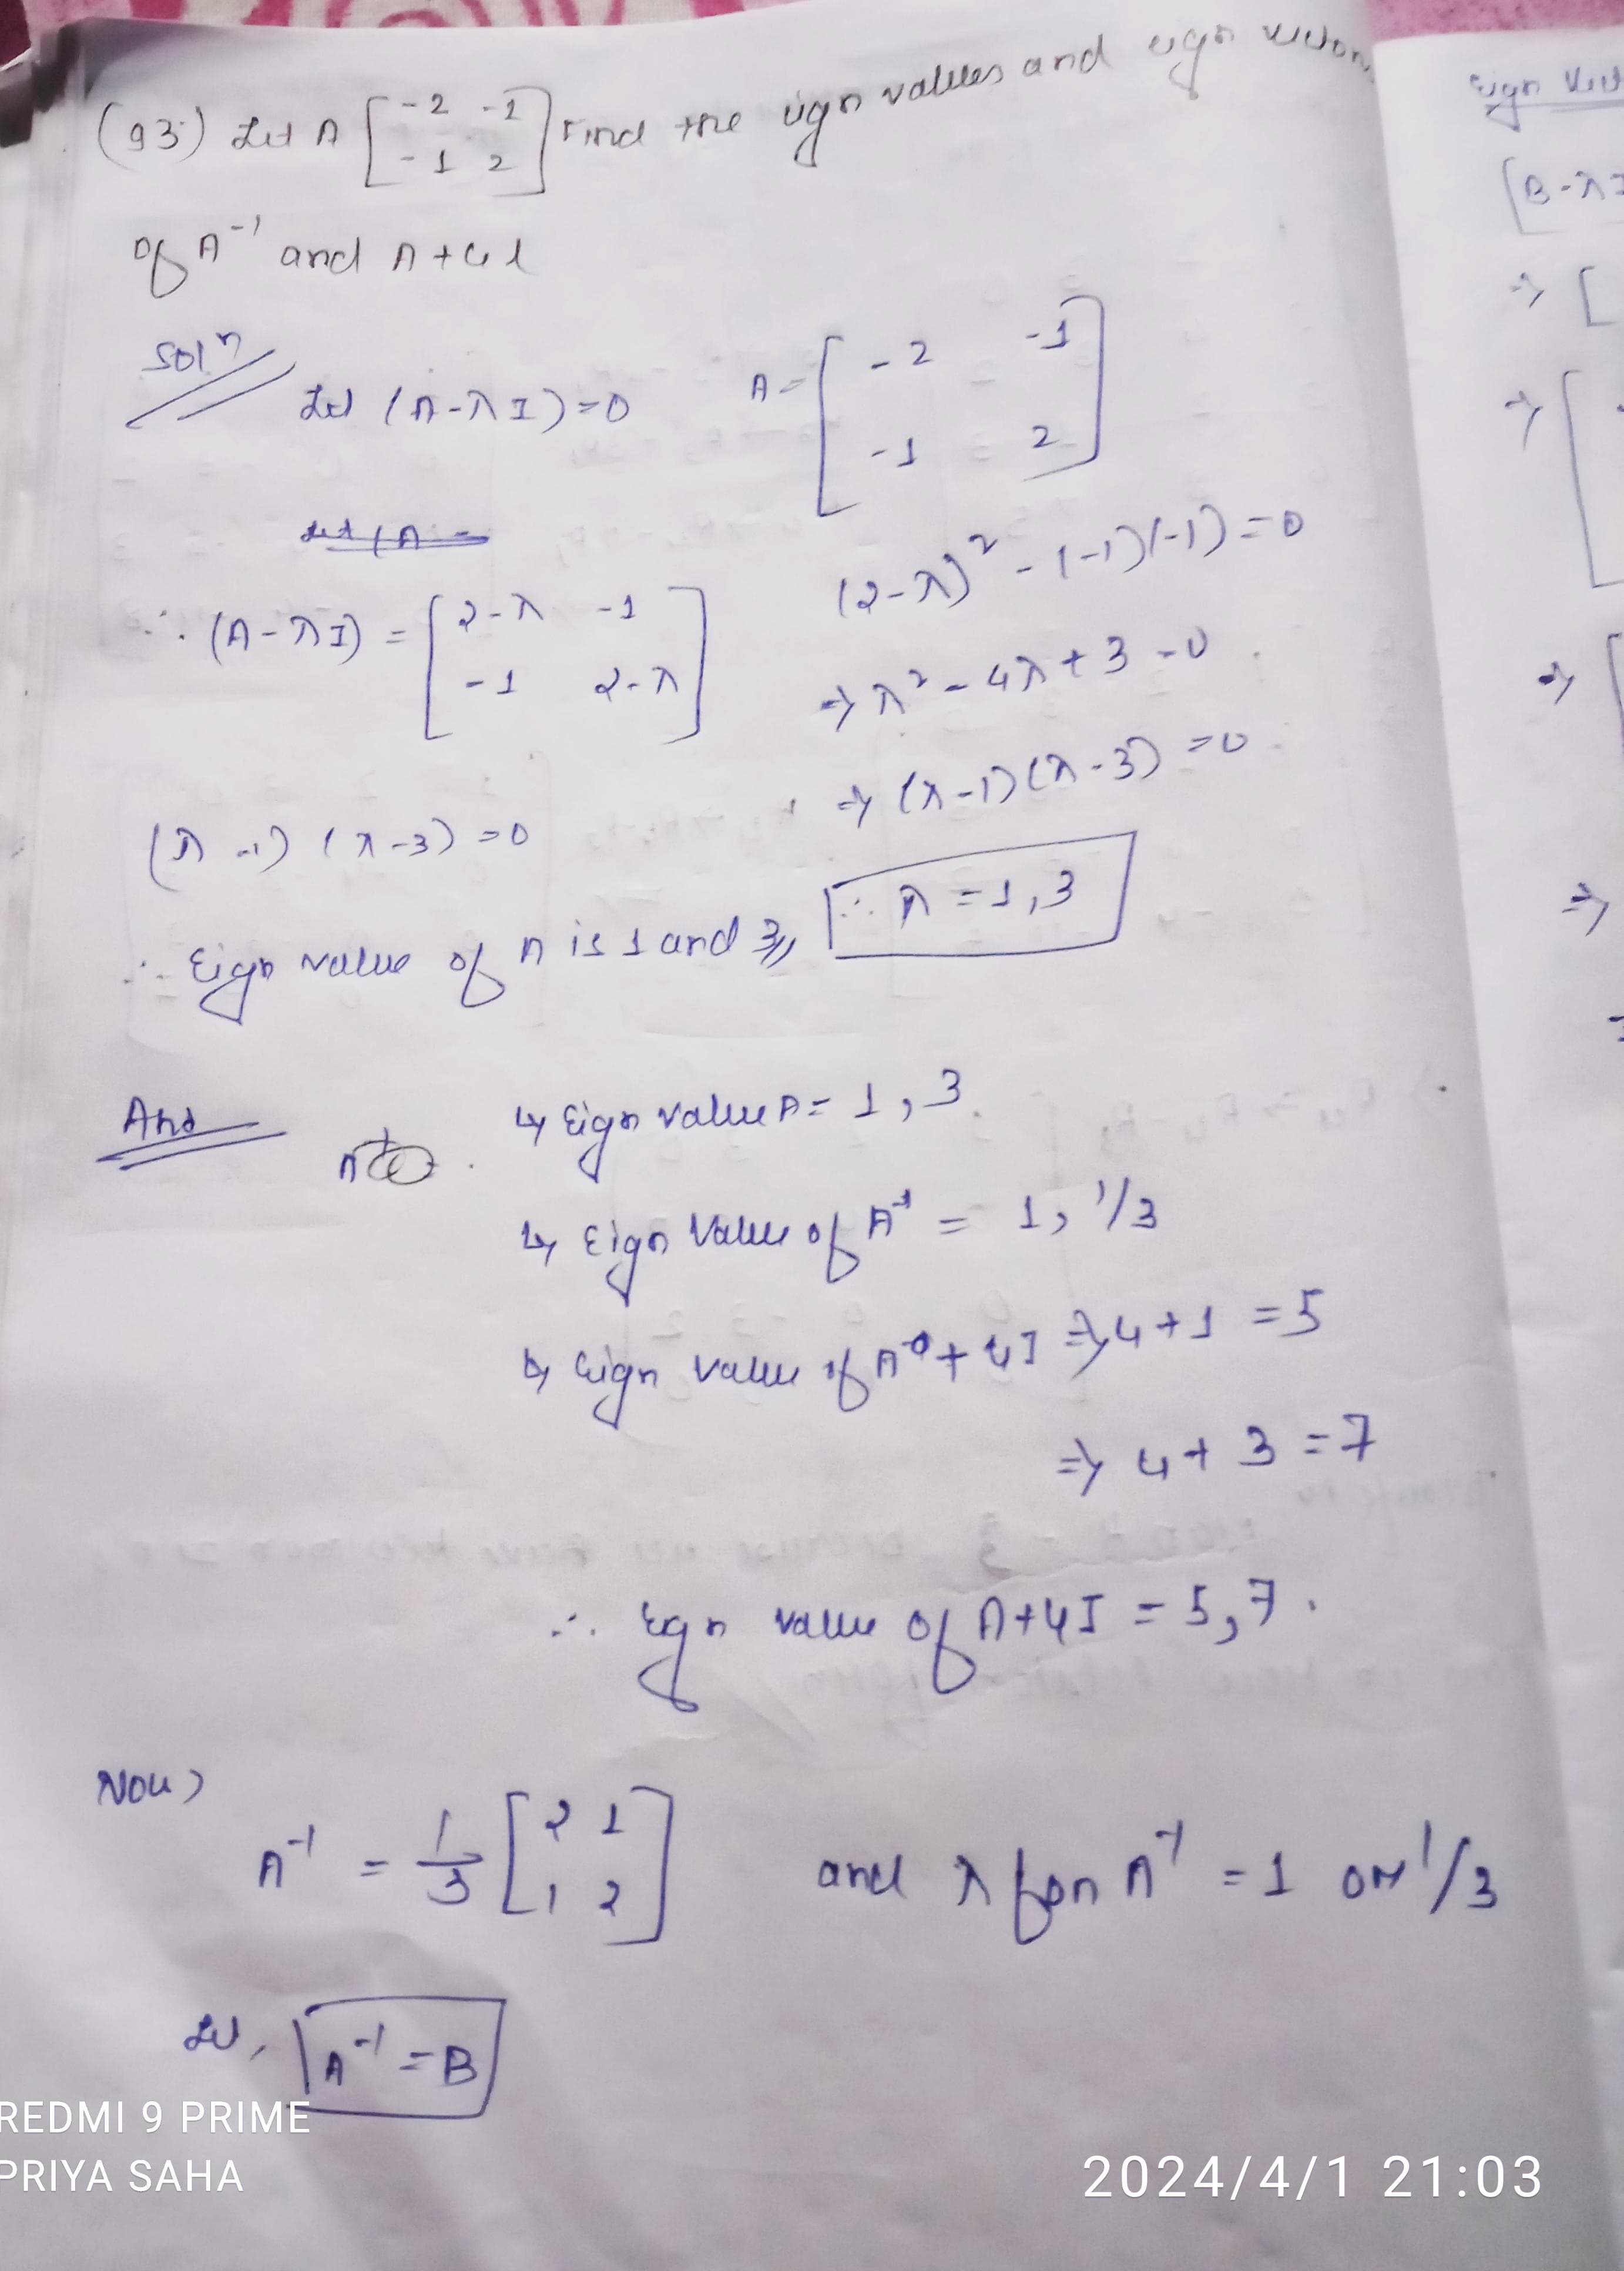 (93) Let A [-2 -1
-1 2] Find the eign values and eign vectors
of A⁻¹ and A+4I
Solⁿ
Let (A-λI)=0
A= [-2 -1
-1 2]
∴ (A-λI) = [2-λ -1
-1 2-λ]
(λ-1) (λ-3) =0
∴ Eign value of A is 1 and 3//
(2-λ)² - (-1)(-1) =0
⇒ λ² - 4λ + 3 =0
⇒ (λ-1) (λ-3) =0
∴ λ = 1,3
And
↳ Eign value A = 1, 3
↳ Eign Value of A⁻¹ = 1, 1/3
↳ Eign value of A + 4I ⇒ 4+1 = 5
⇒ 4+ 3 = 7
∴ Eign value of A+4I = 5,7.
Now,
A⁻¹ = 1/3 [2 1
1 2] and λ for A⁻¹ = 1 or 1/3
Let, A⁻¹ = B
Eign Vect
[B-λI
⇒ [
⇒ [
⇒ [
⇒
REDMI 9 PRIME
PRIYA SAHA
2024/4/1 21:03